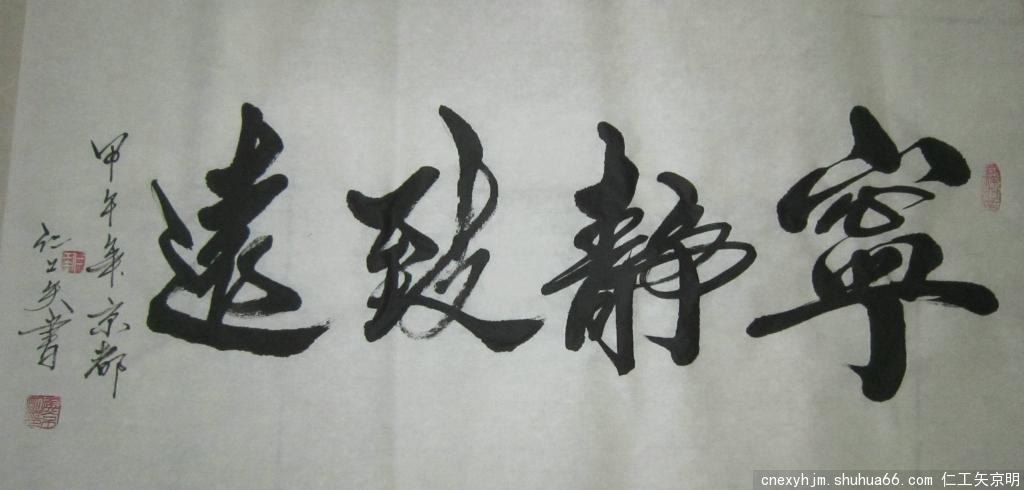 寧靜致遠
甲午年京都
仁工矢書
cnexyhjm.shuhua66.com 仁工矢京明